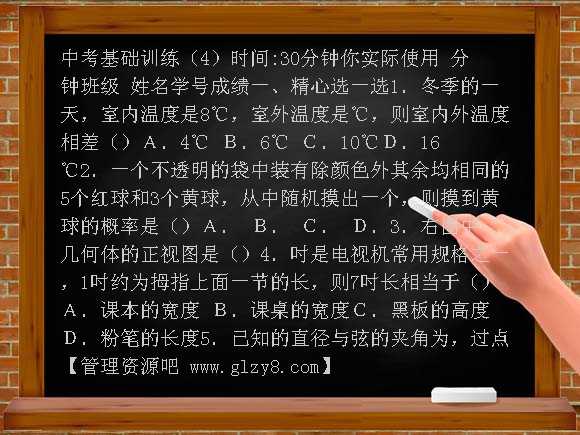 中考基础训练（4）时间:30分钟你实际使用 分
钟班级 姓名学号成绩一、精心选一选1．冬季的一
天，室内温度是8℃，室外温度是℃，则室内外温度
相差（）A．4℃ B．6℃ C．10℃D．16
℃2．一个不透明的袋中装有除颜色外其余均相同的
5个红球和3个黄球，从中随机摸出一个，则摸到黄
球的概率是（）A． B． C． D．3．右
几何体的正视图是（）4．吋是电视机常用规格之一
，1吋约为拇指上面一节的长，则7吋长相当于（）
A．课本的宽度 B．课桌的宽度C．黑板的高度
D．粉笔的长度5．已知的直径与弦的夹角为，过点
【管理资源吧 www.glzy8.com】